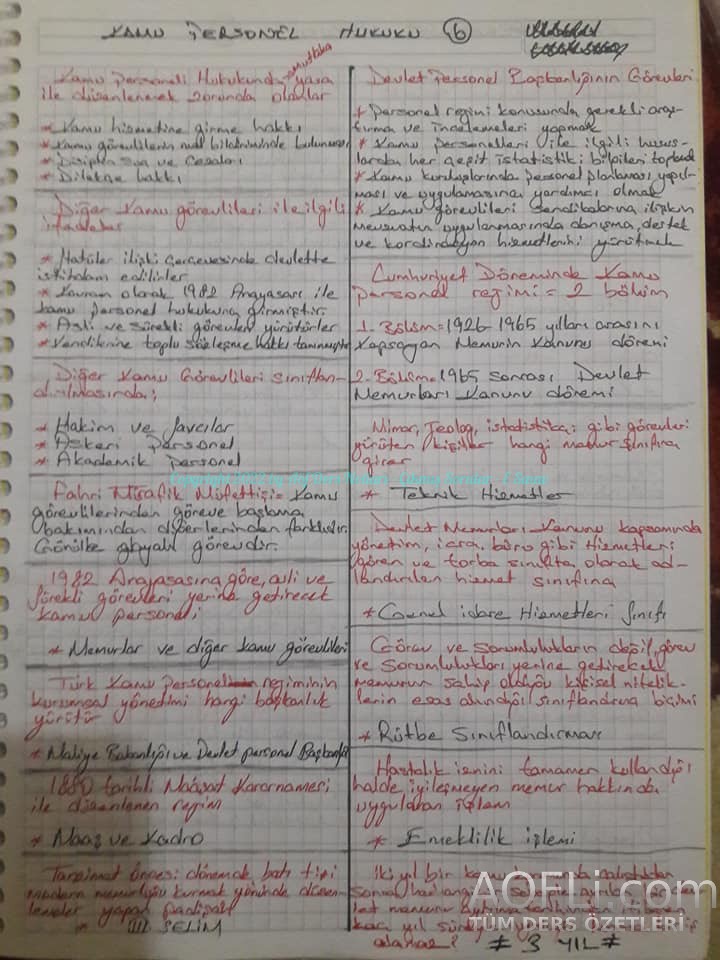 KAMU PERSONEL HUKUKU 6
Kamu Personeli Hukukunda mutlaka yasa
ile düzenlenmek zorunda olanlar
* Kamu hizmetine girme hakkı
* Kamu görevlilerin mal bildiriminde bulunması
* Disiplin suç ve cezaları
* Dilekçe hakkı
Diğer kamu görevlileri ile ilgili
ifadeler
* Statüler ilişki çerçevesinde devlette
istihdam edilirler
* Kavram olarak 1982 Anayasası ile
kamu personel hukukuna girmiştir
* Asli ve sürekli görevleri yürütürler
* Kendilerine toplu sözleşme hakkı tanınmıştır
Diğer Kamu Görevlileri sınıflan-
dırılmasında;
* Hakim ve Savcılar
* Askeri Personel
* Akademik personel
Fahri Trafik Müfettişi = Kamu
görevlilerinden göreve başlama
bakımından diğerlerinden farklıdır.
Gönüllü görevdir.
1982 Anayasasına göre, asli ve
sürekli görevleri yerine getirecek
kamu personeli
* Memurlar ve diğer kamu görevlileri
Türk Kamu Personel rejiminin
kurumsal yönetimi hangi başkanlık
yürütür
* Maliye Bakanlığı ve Devlet personel Başkanlığı
1880 tarihli Maaşat Kararnamesi
ile düzenlenen rejim
* Maaş ve Kadro
Tanzimat öncesi dönemde batı tipi
modern memurluğu kurmak yönünde düzen-
lemeler yapan padişah
* III. SELİM
Devlet Personel Başkanlığının Görevleri
* Personel rejimi konusunda gerekli araş-
tırma ve incelemeleri yapmak
* Kamu personelleri ile ilgili husus-
larda her çeşit istatistiki bilgileri toplamak
* Kamu kuruluşlarında personel planlaması yapıl-
ması ve uygulamasına yardımcı olmak
* Kamu görevlileri sendikalarına ilişkin
mevzuatın uygulanmasında danışma, destek
ve kordindasyon hizmetlerini yürütmek
Cumhuriyet Döneminde Kamu
personel rejimi = 2 bölüm
1. Bölüm = 1926-1965 yılları arasını
Kapsayan Memurin Kanunu dönemi
2. Bölüm = 1965 sonrası Devlet
Memurları Kanunu dönemi
Mimar, Jeolog, istatistikçi gibi görevleri
yürüten kişiler hangi memur sınıfına
girer
* Teknik Hizmetler
Devlet Memurları Kanunu kapsamında
yönetim, icra, büro gibi Hizmetleri
gören ve torba sınıfta olarak ad-
landırılan hizmet sınıfına
* Genel idare Hizmetleri Sınıfı
Görev ve sorumlulukların değil, görev
ve sorumlulukları yerine getirecek
memurun sahip olduğu kişisel nitelik-
lerin esas alındığı sınıflandırma biçimi
* Rütbe Sınıflandırması
Hastalık iznini tamamen kullandığı
halde, iyileşmeyen memur hakkında
uygulanan işlem
* Emeklilik işlemi
İki yıl bir kamu
sonra herhangi
let memuru
kaç yıl süreyle
alamaz? # 3 YIL #
AOFLi.com
TÜM DERS ÖZETLERİ